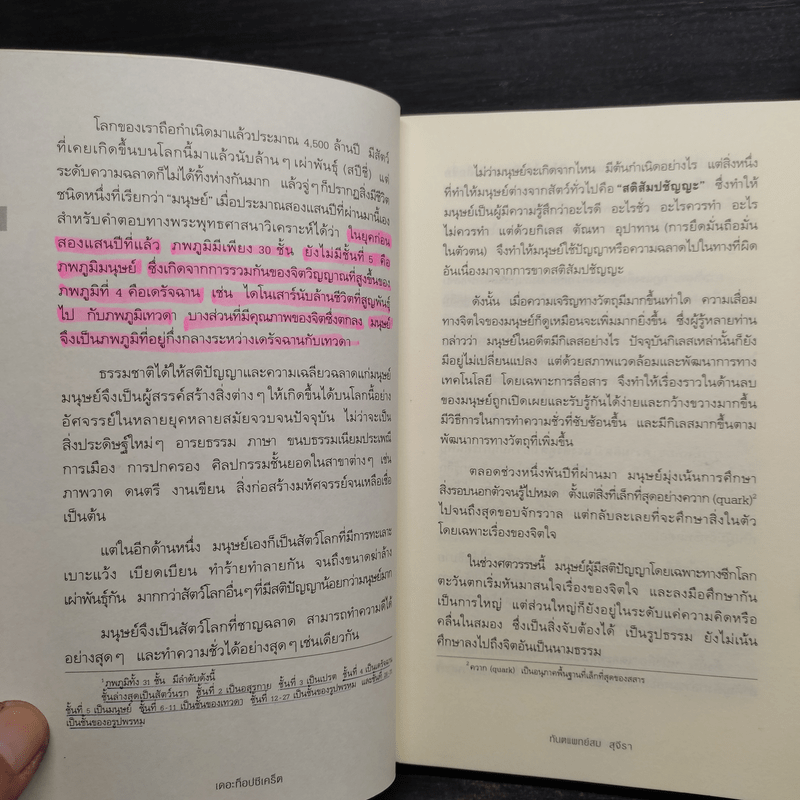 โลกของเราถือกำเนิดมาแล้วประมาณ 4,500 ล้านปี มีสัตว์
ที่เคยเกิดขึ้นบนโลกนี้มาแล้วนับล้านๆ เผ่าพันธุ์ (สปีชี่) แต่
ระดับความฉลาดก็ไม่ได้ทิ้งห่างกันมาก แล้วจู่ๆ ก็ปรากฏสิ่งมีชีวิต
ชนิดหนึ่งที่เรียกว่า “มนุษย์” เมื่อประมาณสองแสนปีที่ผ่านมานี้เอง
สำหรับคำตอบทางพระพุทธศาสนาวิเคราะห์ได้ว่า ในยุคก่อน
สองแสนปีที่แล้ว ภพภูมิมีเพียง 30 ชั้น ยังไม่มีชั้นที่ 5 คือ
ภพภูมิมนุษย์ ซึ่งเกิดจากการรวมกันของจิตวิญญาณที่สูงขึ้นของ
ภพภูมิที่ 4 คือเดรัจฉาน เช่น ไดโนเสาร์นับล้านชีวิตที่สูญพันธุ์
ไป กับภพภูมิเทวดา บางส่วนที่มีคุณภาพของจิตซึ่งตกลง มนุษย์
จึงเป็นภพภูมิที่อยู่กึ่งกลางระหว่างเดรัจฉานกับเทวดา
ธรรมชาติได้ให้สติปัญญาและความเฉลียวฉลาดแก่มนุษย์
มนุษย์จึงเป็นผู้สรรค์สร้างสิ่งต่างๆ ให้เกิดขึ้นได้บนโลกนี้อย่าง
อัศจรรย์ในหลายยุคหลายสมัยจวบจนปัจจุบัน ไม่ว่าจะเป็น
สิ่งประดิษฐ์ใหม่ๆ อารยธรรม ภาษา ขนบธรรมเนียมประเพณี
การเมือง การปกครอง ศิลปกรรมชั้นยอดในสาขาต่างๆ เช่น
ภาพวาด ดนตรี งานเขียน สิ่งก่อสร้างมหัศจรรย์จนเหลือเชื่อ
เป็นต้น
แต่ในอีกด้านหนึ่ง มนุษย์เองก็เป็นสัตว์โลกที่มีการทะเลาะ
เบาะแว้ง เบียดเบียน ทำร้ายทำลายกัน จนถึงขนาดฆ่าล้าง
เผ่าพันธุ์กัน มากกว่าสัตว์โลกอื่นๆ ที่มีสติปัญญาน้อยกว่ามนุษย์มาก
มนุษย์จึงเป็นสัตว์โลกที่ชาญฉลาด สามารถทำความดีได้
อย่างสุดๆ และทำความชั่วได้อย่างสุดๆ เช่นเดียวกัน
¹ ภพภูมิทั้ง 31 ชั้น มีลำดับดังนี้
ชั้นล่างสุดเป็นสัตว์นรก ชั้นที่ 2 เป็นอสุรกาย ชั้นที่ 3 เป็นเปรต ชั้นที่ 4 เป็นเดรัจฉาน
ชั้นที่ 5 เป็นมนุษย์ ชั้นที่ 6-11 เป็นชั้นของเทวดา ชั้นที่ 12-27 เป็นชั้นของรูปพรหม และชั้นที่
เป็นชั้นของอรูปพรหม
เดอะท็อปซีเคร็ต
ไม่ว่ามนุษย์จะเกิดจากไหน มีต้นกำเนิดอย่างไร แต่สิ่งหนึ่ง
ที่ทำให้มนุษย์ต่างจากสัตว์ทั่วไปคือ “สติสัมปชัญญะ” ซึ่งทำให้
มนุษย์เป็นผู้มีความรู้สึกว่าอะไรดี อะไรชั่ว อะไรควรทำ อะไร
ไม่ควรทำ แต่ด้วยกิเลส ตัณหา อุปาทาน (การยึดมั่นถือมั่น
ในตัวตน) จึงทำให้มนุษย์ใช้ปัญญาหรือความฉลาดไปในทางที่ผิด
อันเนื่องมาจากการขาดสติสัมปชัญญะ
ดังนั้น เมื่อความเจริญทางวัตถุมีมากขึ้นเท่าใด ความเสื่อม
ทางจิตใจของมนุษย์ก็ดูเหมือนจะเพิ่มมากยิ่งขึ้น ซึ่งผู้รู้หลายท่าน
กล่าวว่า มนุษย์ในอดีตมีกิเลสอย่างไร ปัจจุบันกิเลสเหล่านั้นก็ยัง
มีอยู่ไม่เปลี่ยนแปลง แต่ด้วยสภาพแวดล้อมและพัฒนาการทาง
เทคโนโลยี โดยเฉพาะการสื่อสาร จึงทำให้เรื่องราวในด้านลบ
ของมนุษย์ถูกเปิดเผยและรับรู้กันได้ง่ายและกว้างขวางมากขึ้น
มีวิธีการในการทำความชั่วที่ซับซ้อนขึ้น และมีกิเลสมากขึ้นตาม
พัฒนาการทางวัตถุที่เพิ่มขึ้น
ตลอดช่วงหนึ่งพันปีที่ผ่านมา มนุษย์มุ่งเน้นการศึกษา
สิ่งรอบนอกตัวจนรู้ไปหมด ตั้งแต่สิ่งที่เล็กที่สุดอย่างควาก (quark)²
ไปจนถึงสุดขอบจักรวาล แต่กลับละเลยที่จะศึกษาสิ่งในตัว
โดยเฉพาะเรื่องของจิตใจ
ในช่วงศตวรรษนี้ มนุษย์ผู้มีสติปัญญาโดยเฉพาะทางซีกโลก
ตะวันตกเริ่มหันมาสนใจเรื่องของจิตใจ และลงมือศึกษากัน
เป็นการใหญ่ แต่ส่วนใหญ่ก็ยังอยู่ในระดับแค่ความคิดหรือ
คลื่นในสมอง ซึ่งเป็นสิ่งจับต้องได้ เป็นรูปธรรม ยังไม่เน้น
ศึกษาลงไปถึงจิตอันเป็นนามธรรม
² ควาก (quark) เป็นอนุภาคพื้นฐานที่เล็กที่สุดของสสาร
ทันตแพทย์สม สุจีรา